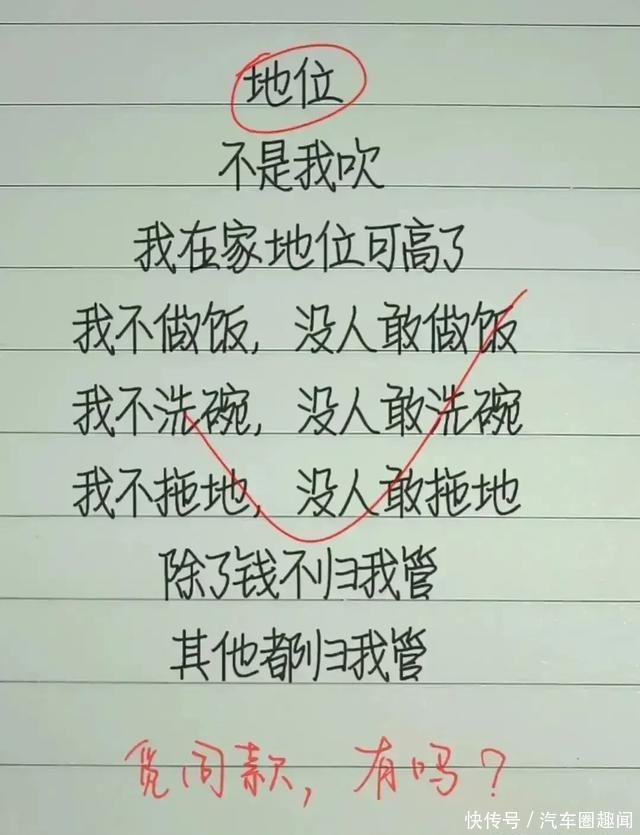 地位
不是我吹
我在家地位可高了
我不做饭，没人敢做饭
我不洗碗，没人敢洗碗
我不拖地，没人敢拖地
除了钱不归我管
其他都归我管
觅同款，有吗？
快传号／汽车圈趣闻